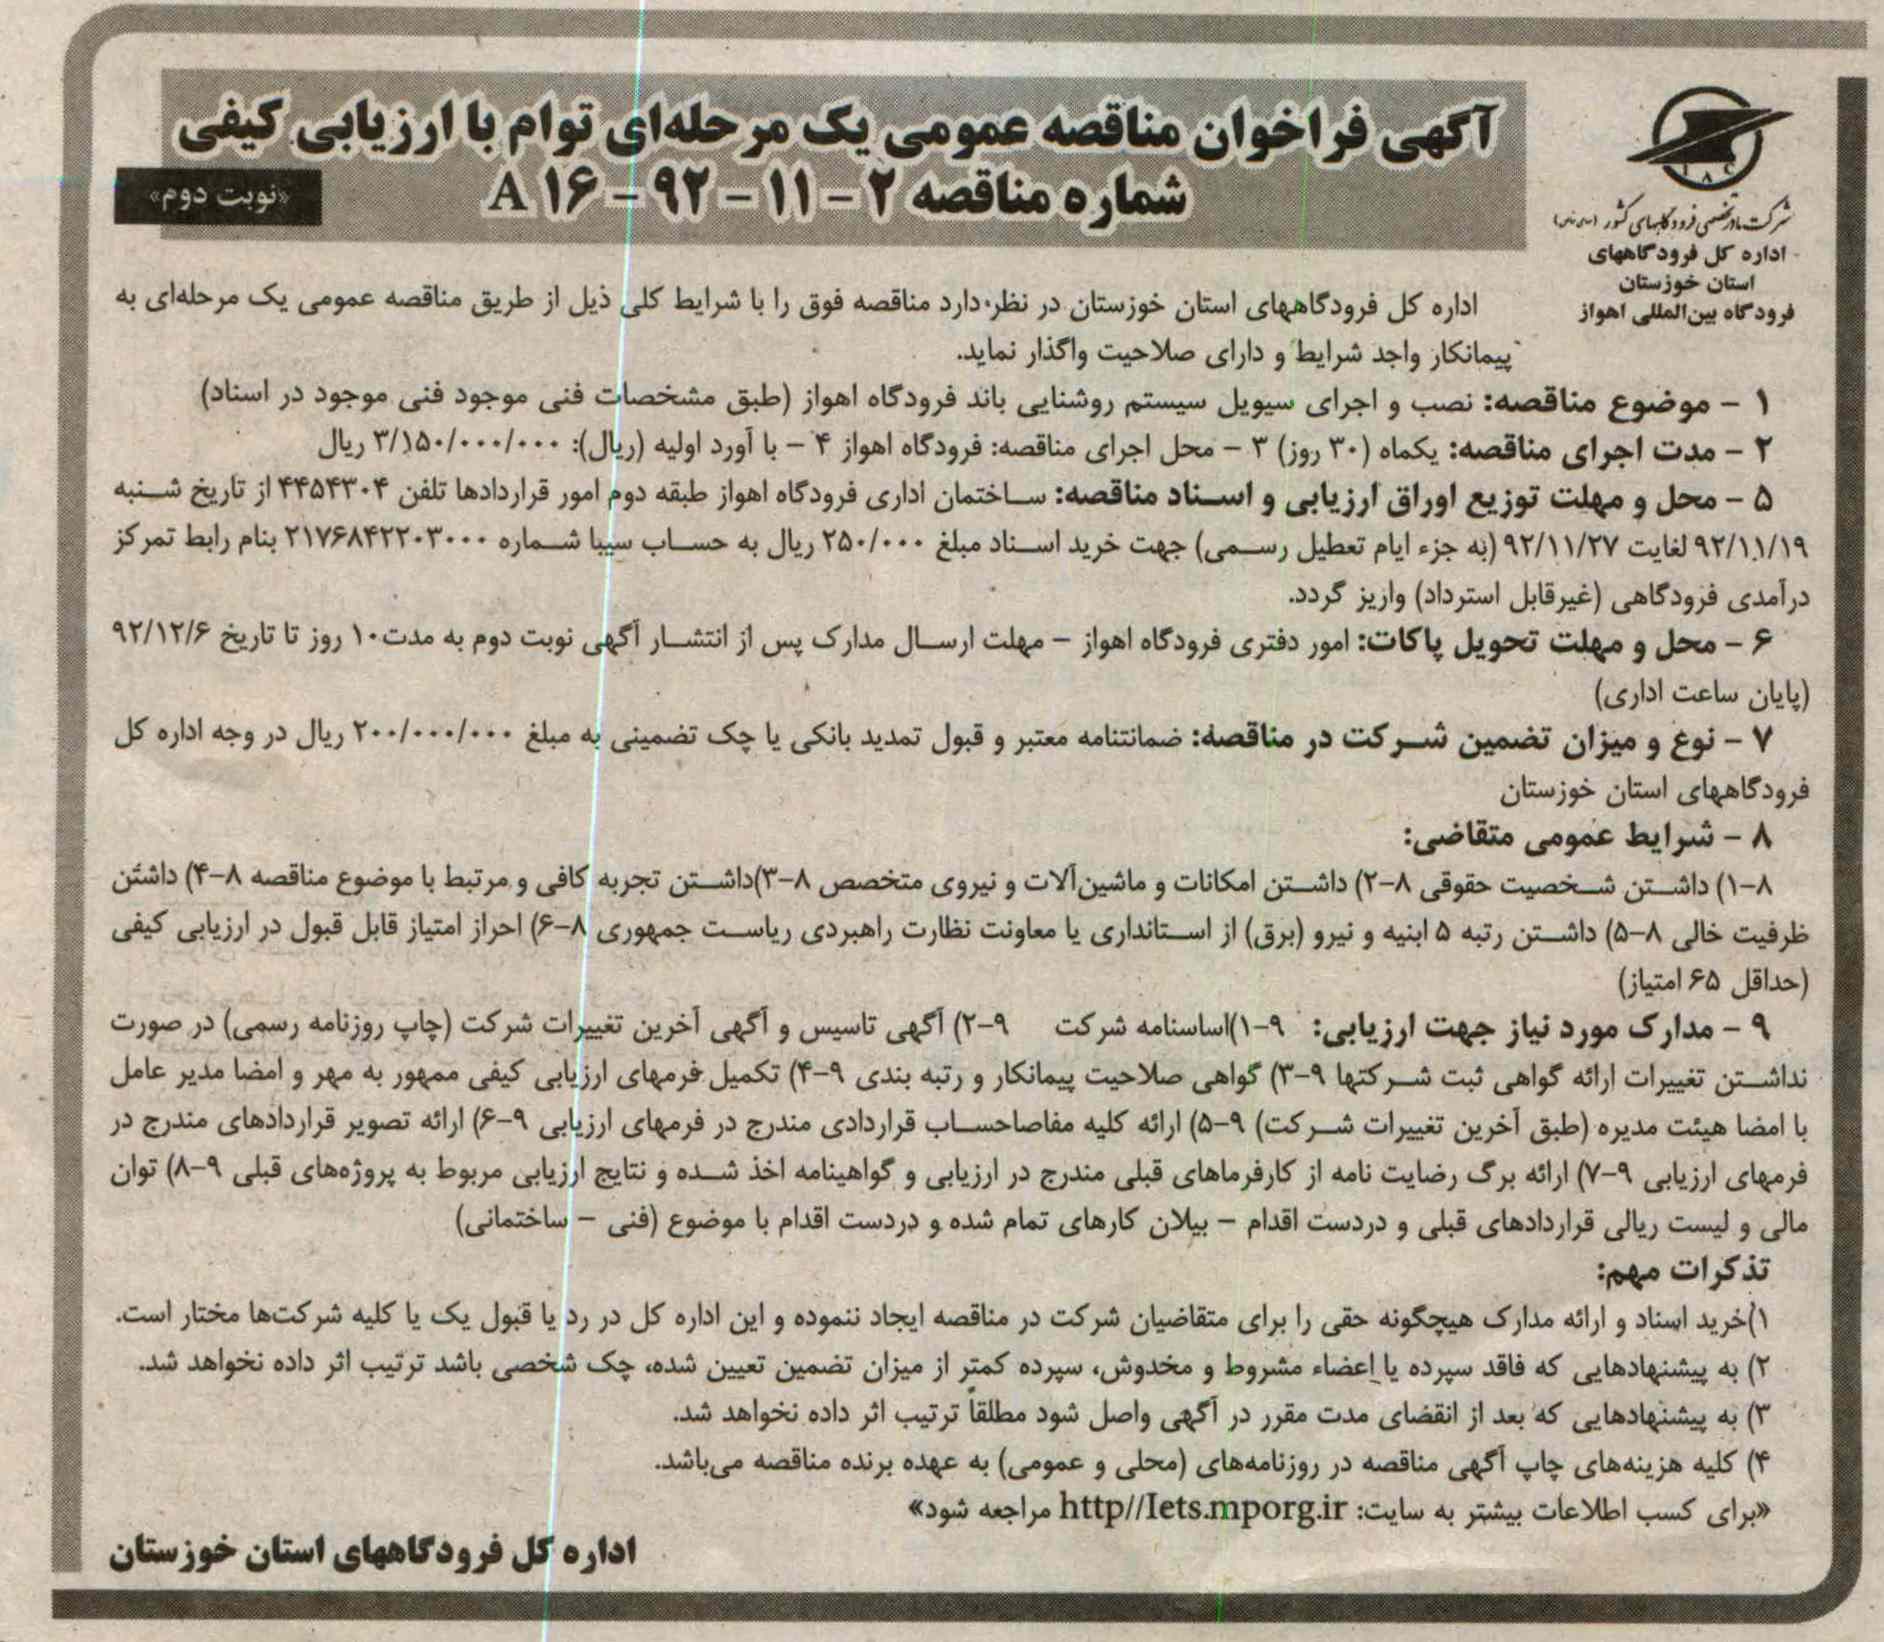 آگهی فراخوان مناقصه عمومی یک مرحله‌ای توام با ارزیابی کیفی
شماره مناقصه ۲ – ۱۱ – ۹۲ – ۱۶ A
«نوبت دوم»
IAC
شرکت مادر تخصصی فرودگاههای کشور (سهامی خاص)
اداره کل فرودگاههای
استان خوزستان
فرودگاه بین‌المللی اهواز
اداره کل فرودگاههای استان خوزستان در نظر دارد مناقصه فوق را با شرایط کلی ذیل از طریق مناقصه عمومی یک مرحله‌ای به
پیمانکار واجد شرایط و دارای صلاحیت واگذار نماید.
۱ – موضوع مناقصه: نصب و اجرای سیویل سیستم روشنایی باند فرودگاه اهواز (طبق مشخصات فنی موجود فنی موجود در اسناد)
۲ – مدت اجرای مناقصه: یکماه (۳۰ روز) ۳ – محل اجرای مناقصه: فرودگاه اهواز ۴ – با آورد اولیه (ریال): ۳/۱۵۰/۰۰۰/۰۰۰ ریال
۵ – محل و مهلت توزیع اوراق ارزیابی و اسناد مناقصه: ساختمان اداری فرودگاه اهواز طبقه دوم امور قراردادها تلفن ۴۴۵۴۳۰۴ از تاریخ شنبه
۹۲/۱۱/۱۹ لغایت ۹۲/۱۱/۲۷ (به جزء ایام تعطیل رسمی) جهت خرید اسناد مبلغ ۲۵۰/۰۰۰ ریال به حساب سیبا شماره ۲۱۷۶۸۴۲۲۰۳۰۰۰ بنام رابط تمرکز
درآمدی فرودگاهی (غیرقابل استرداد) واریز گردد.
۶ – محل و مهلت تحویل پاکات: امور دفتری فرودگاه اهواز – مهلت ارسال مدارک پس از انتشار آگهی نوبت دوم به مدت ۱۰ روز تا تاریخ ۹۲/۱۲/۶
(پایان ساعت اداری)
۷ – نوع و میزان تضمین شرکت در مناقصه: ضمانتنامه معتبر و قبول تمدید بانکی یا چک تضمینی به مبلغ ۲۰۰/۰۰۰/۰۰۰ ریال در وجه اداره کل
فرودگاههای استان خوزستان
۸ – شرایط عمومی متقاضی:
۸–۱) داشتن شخصیت حقوقی ۸–۲) داشتن امکانات و ماشین‌آلات و نیروی متخصص ۸–۳)داشتن تجربه کافی و مرتبط با موضوع مناقصه ۸–۴) داشتن
ظرفیت خالی ۸–۵) داشتن رتبه ۵ ابنیه و نیرو (برق) از استانداری یا معاونت نظارت راهبردی ریاست جمهوری ۸–۶) احراز امتیاز قابل قبول در ارزیابی کیفی
(حداقل ۶۵ امتیاز)
۹ – مدارک مورد نیاز جهت ارزیابی: ۹–۱)اساسنامه شرکت ۹–۲) آگهی تاسیس و آگهی آخرین تغییرات شرکت (چاپ روزنامه رسمی) در صورت
نداشتن تغییرات ارائه گواهی ثبت شرکتها ۹–۳) گواهی صلاحیت پیمانکار و رتبه بندی ۹–۴) تکمیل فرمهای ارزیابی کیفی ممهور به مهر و امضا مدیر عامل
با امضا هیئت مدیره (طبق آخرین تغییرات شرکت) ۹–۵) ارائه کلیه مفاصاحساب قراردادی مندرج در فرمهای ارزیابی ۹–۶) ارائه تصویر قراردادهای مندرج در
فرمهای ارزیابی ۹–۷) ارائه برگ رضایت نامه از کارفرماهای قبلی مندرج در ارزیابی و گواهینامه اخذ شده و نتایج ارزیابی مربوط به پروژه‌های قبلی ۹–۸) توان
مالی و لیست ریالی قراردادهای قبلی و دردست اقدام – بیلان کارهای تمام شده و دردست اقدام با موضوع (فنی – ساختمانی)
تذکرات مهم:
۱)خرید اسناد و ارائه مدارک هیچگونه حقی را برای متقاضیان شرکت در مناقصه ایجاد ننموده و این اداره کل در رد یا قبول یک یا کلیه شرکت‌ها مختار است.
۲) به پیشنهادهایی که فاقد سپرده یا إعضاء مشروط و مخدوش، سپرده کمتر از میزان تضمین تعیین شده، چک شخصی باشد ترتیب اثر داده نخواهد شد.
۳) به پیشنهادهایی که بعد از انقضای مدت مقرر در آگهی واصل شود مطلقاً ترتیب اثر داده نخواهد شد.
۴) کلیه هزینه‌های چاپ آگهی مناقصه در روزنامه‌های (محلی و عمومی) به عهده برنده مناقصه می‌باشد.
«برای کسب اطلاعات بیشتر به سایت: http//Iets.mporg.ir مراجعه شود»
اداره کل فرودگاههای استان خوزستان